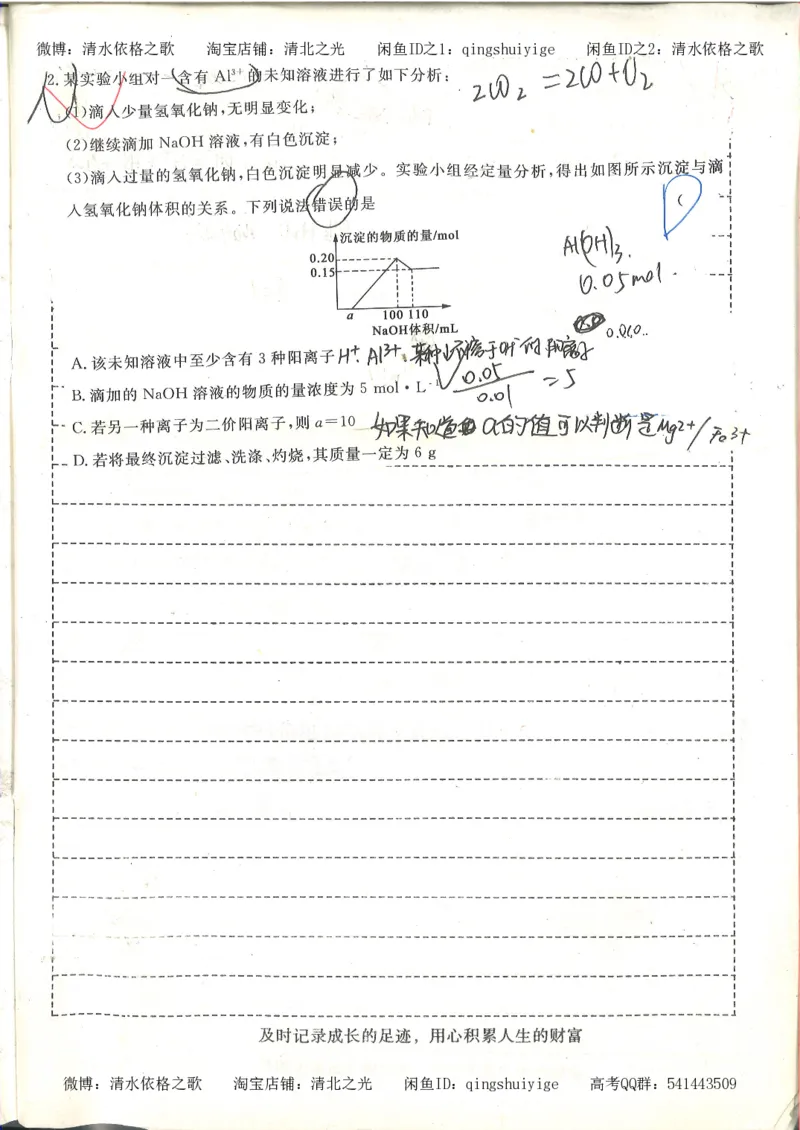 微博：清水依格之歌 淘宝店铺：清北之光 闲鱼ID之1：qingshuiyige 闲鱼ID之2：清水依格之歌
2CO2 =2CO+O2
2.某实验小组对一含有 Al³⁺ 的未知溶液进行了如下分析：
(1)滴入少量氢氧化钠,无明显变化；
(2)继续滴加 NaOH 溶液,有白色沉淀；
(3)滴入过量的氢氧化钠,白色沉淀明显减少。实验小组经定量分析,得出如图所示沉淀与滴
入氢氧化钠体积的关系。下列说法错误的是
C
沉淀的物质的量/mol
0.20
0.15
a 100 110
NaOH体积/mL
Al(OH)3.
0.05mol.
A.该未知溶液中至少含有 3 种阳离子 H⁺. Al³⁺.
B.滴加的 NaOH 溶液的物质的量浓度为 5 mol·L⁻¹ 0.05/0.01 =5
C.若另一种离子为二价阳离子,则 a=10 如果知道 a的值可以判断是Mg2+/Fe3+
D.若将最终沉淀过滤、洗涤、灼烧,其质量一定为 6 g
及时记录成长的足迹，用心积累人生的财富
微博：清水依格之歌 淘宝店铺：清北之光 闲鱼ID：qingshuiyige 高考QQ群：541443509